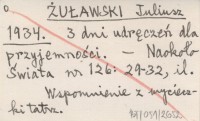 0 ŻUŁAWSKI Juliusz
1934. 3 dni udręczeń dla
przyjemności. — Naokoło
Świata nr 126: 29-32, il.
Wspomnienie z wyciecz-
ki tatrz.